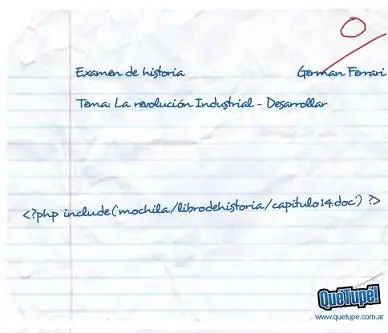 Examen de historia German Ferrari
Tema: La revolución Industrial - Desarrollar
<?php include('mochila/librodehistoria/capitulo14.doc') ?>
QuéTupé!
www.quetupe.com.ar